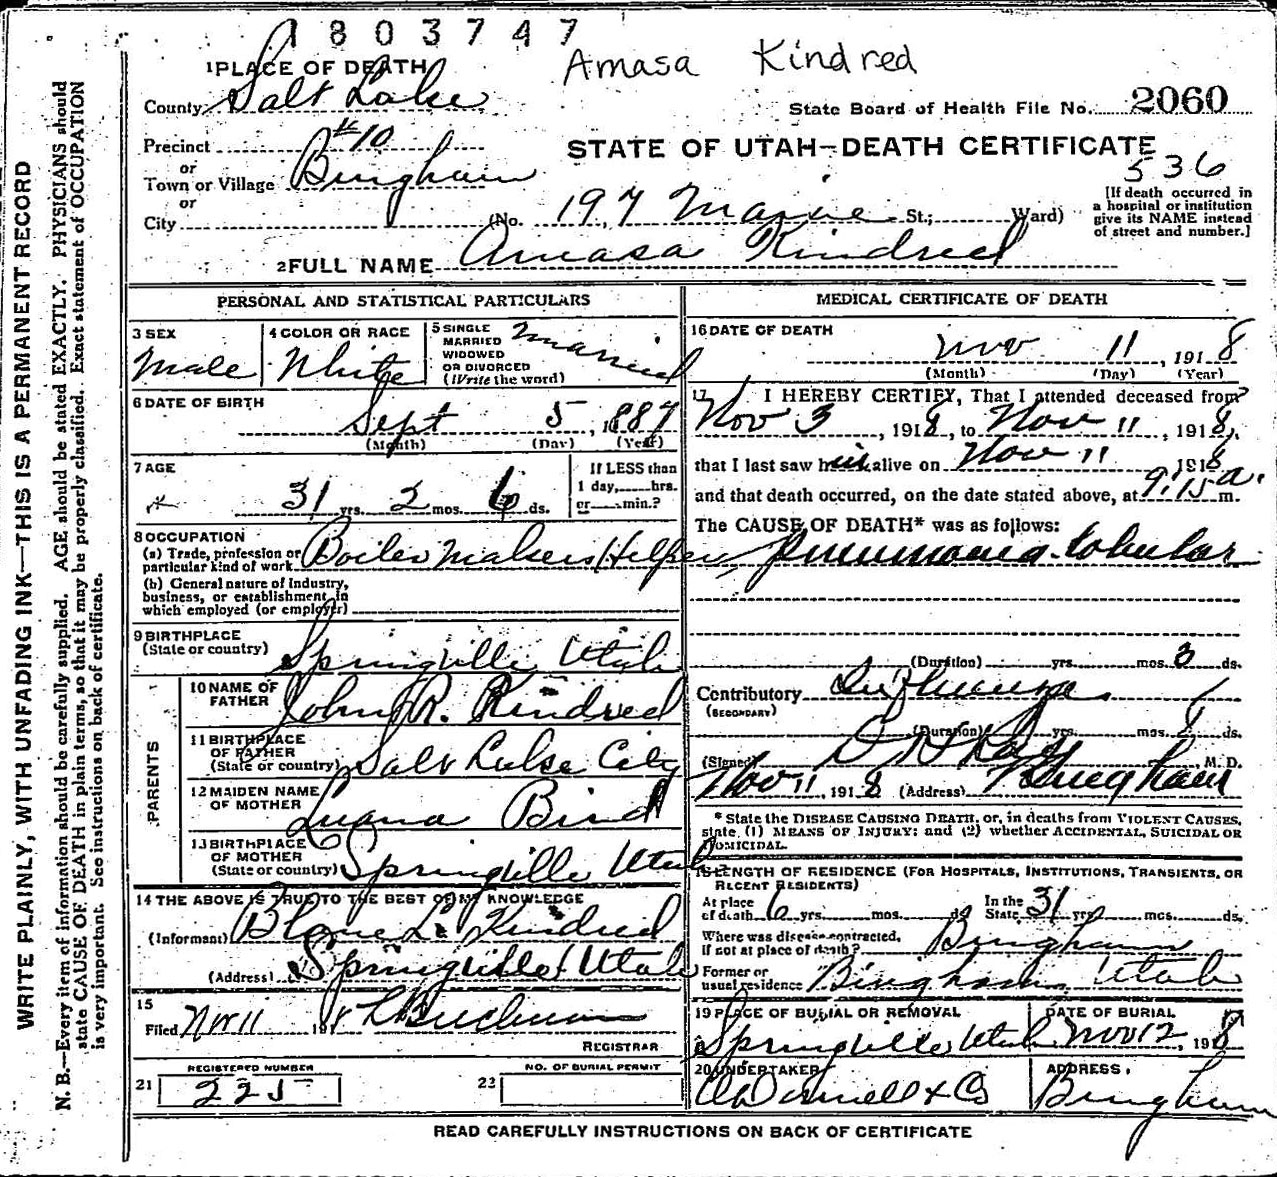 1803747
Amasa Kindred
1 PLACE OF DEATH
County Salt Lake
State Board of Health File No. 2060
Precinct #10
or
Town or Village Bingham
or
City
STATE OF UTAH—DEATH CERTIFICATE
536
(No. 197 Maine St.; Ward)
[If death occurred in
a hospital or institution
give its NAME instead
of street and number.]
2 FULL NAME Amasa Kindred
PERSONAL AND STATISTICAL PARTICULARS
3 SEX
Male
4 COLOR OR RACE
White
5 SINGLE
MARRIED
WIDOWED
OR DIVORCED
(Write the word)
Married
6 DATE OF BIRTH
Sept 5, 1887
(Month) (Day) (Year)
7 AGE
31 yrs. 2 mos. 6 ds.
If LESS than
1 day, hrs.
or min.?
8 OCCUPATION
(a) Trade, profession or
particular kind of work Boiler Makers Helper
(b) General nature of Industry,
business, or establishment in
which employed (or employer)
9 BIRTHPLACE
(State or country) Springville Utah
PARENTS
10 NAME OF
FATHER John R. Kindred
11 BIRTHPLACE
OF FATHER
(State or country) Salt Lake City
12 MAIDEN NAME
OF MOTHER Luana Bird
13 BIRTHPLACE
OF MOTHER
(State or country) Springville Utah
14 THE ABOVE IS TRUE TO THE BEST OF MY KNOWLEDGE
(Informant) Kindred
(Address) Springville Utah
15
Filed Nov 11 191
REGISTRAR
REGISTERED NUMBER
21 225
NO. OF BURIAL PERMIT
23
MEDICAL CERTIFICATE OF DEATH
16 DATE OF DEATH
Nov 11, 1918
(Month) (Day) (Year)
17 I HEREBY CERTIFY, That I attended deceased from
Nov 3, 1918, to Nov 11, 1918,
that I last saw him alive on Nov 11 1918
and that death occurred, on the date stated above, at 9:15 a. m.
The CAUSE OF DEATH* was as follows:
Pneumonia lobular
(Duration) yrs. mos. 3 ds.
Contributory Influenza
(SECONDARY)
(Duration) yrs. mos. 8 ds.
(Signed) M. D.
Nov 11, 1918 (Address) Bingham
* State the DISEASE CAUSING DEATH, or, in deaths from VIOLENT CAUSES,
state (1) MEANS OF INJURY; and (2) whether ACCIDENTAL, SUICIDAL OR
HOMICIDAL.
18 LENGTH OF RESIDENCE (FOR HOSPITALS, INSTITUTIONS, TRANSIENTS, OR
RECENT RESIDENTS)
At place
of death 6 yrs. mos. ds.
In the
State 31 yrs. mos. ds.
Where was disease contracted,
If not at place of death? Bingham
Former or
usual residence Bingham Utah
19 PLACE OF BURIAL OR REMOVAL
Springville Utah
DATE OF BURIAL
Nov 12, 1918
20 UNDERTAKER
O'Donnell & Co
ADDRESS
Bingham
READ CAREFULLY INSTRUCTIONS ON BACK OF CERTIFICATE
WRITE PLAINLY, WITH UNFADING INK—THIS IS A PERMANENT RECORD
N. B.—Every item of information should be carefully supplied. AGE should be stated EXACTLY. PHYSICIANS should
state CAUSE OF DEATH in plain terms, so that it may be properly classified. Exact statement of OCCUPATION
is very important. See instructions on back of certificate.